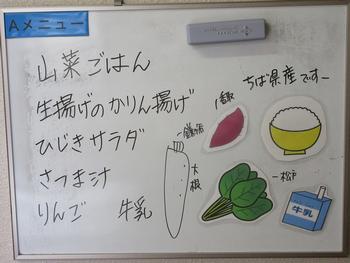 Aメニュー
山菜ごはん
生揚げのかりん揚げ
ひじきサラダ
さつま汁
りんご 牛乳
ちば県産ですー
大根
松戸
牛乳